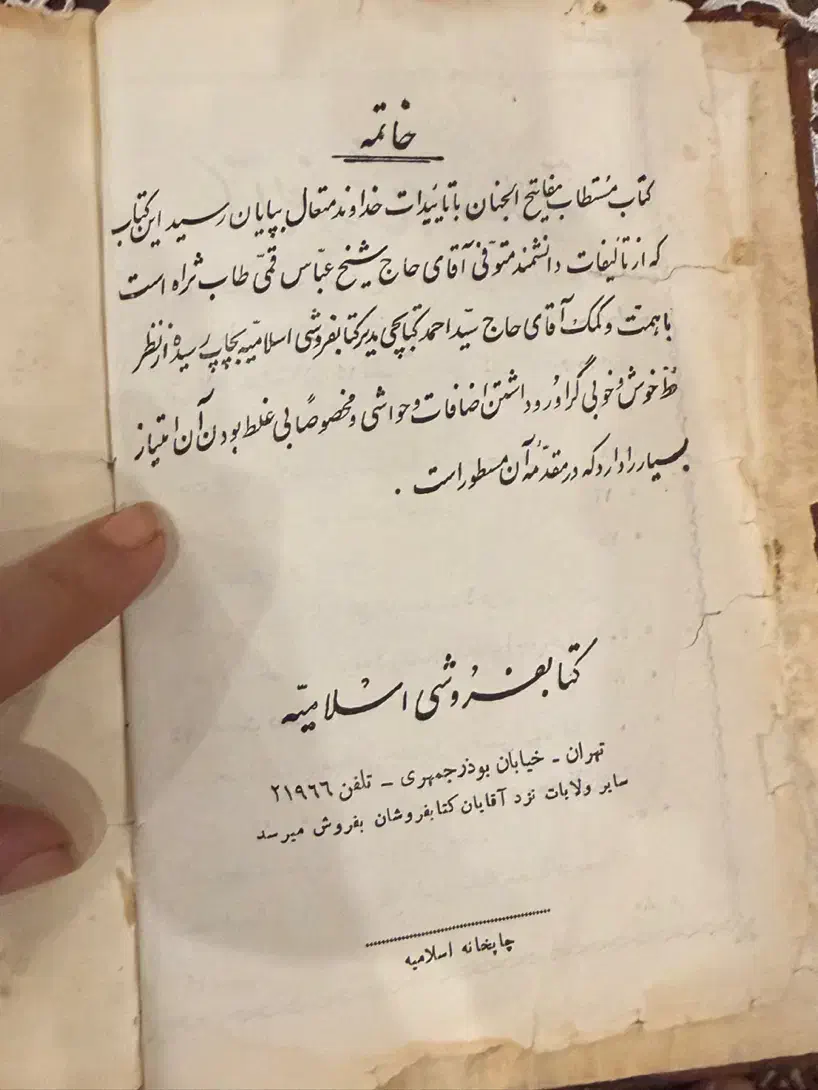 خاتمه
کتاب مستطاب مفاتیح الجنان با تاییدات خداوند متعال بپایان رسید این کتاب
که از تالیفات دانشمند متوفی آقای حاج شیخ عبّاس قمیّ طاب ثراه است
با همت و کمک آقای حاج سیّد احمد کتابچی مدیر کتابفروشی اسلامیّه بچاپ رسیده از نظر
خطّ خوش و خوبی گراور و داشتن اضافات و حواشی و مخصوصاً بی غلط بودن آن امتیاز
بسیار را دارد که در مقدّمه آن مسطور است .
کتابفروشی اسلامیّه
تهران - خیابان بوذرجمهری - تلفن ۲۱۹۶۶
سایر ولایات نزد آقایان کتابفروشان بفروش میرسد
چاپخانه اسلامیه